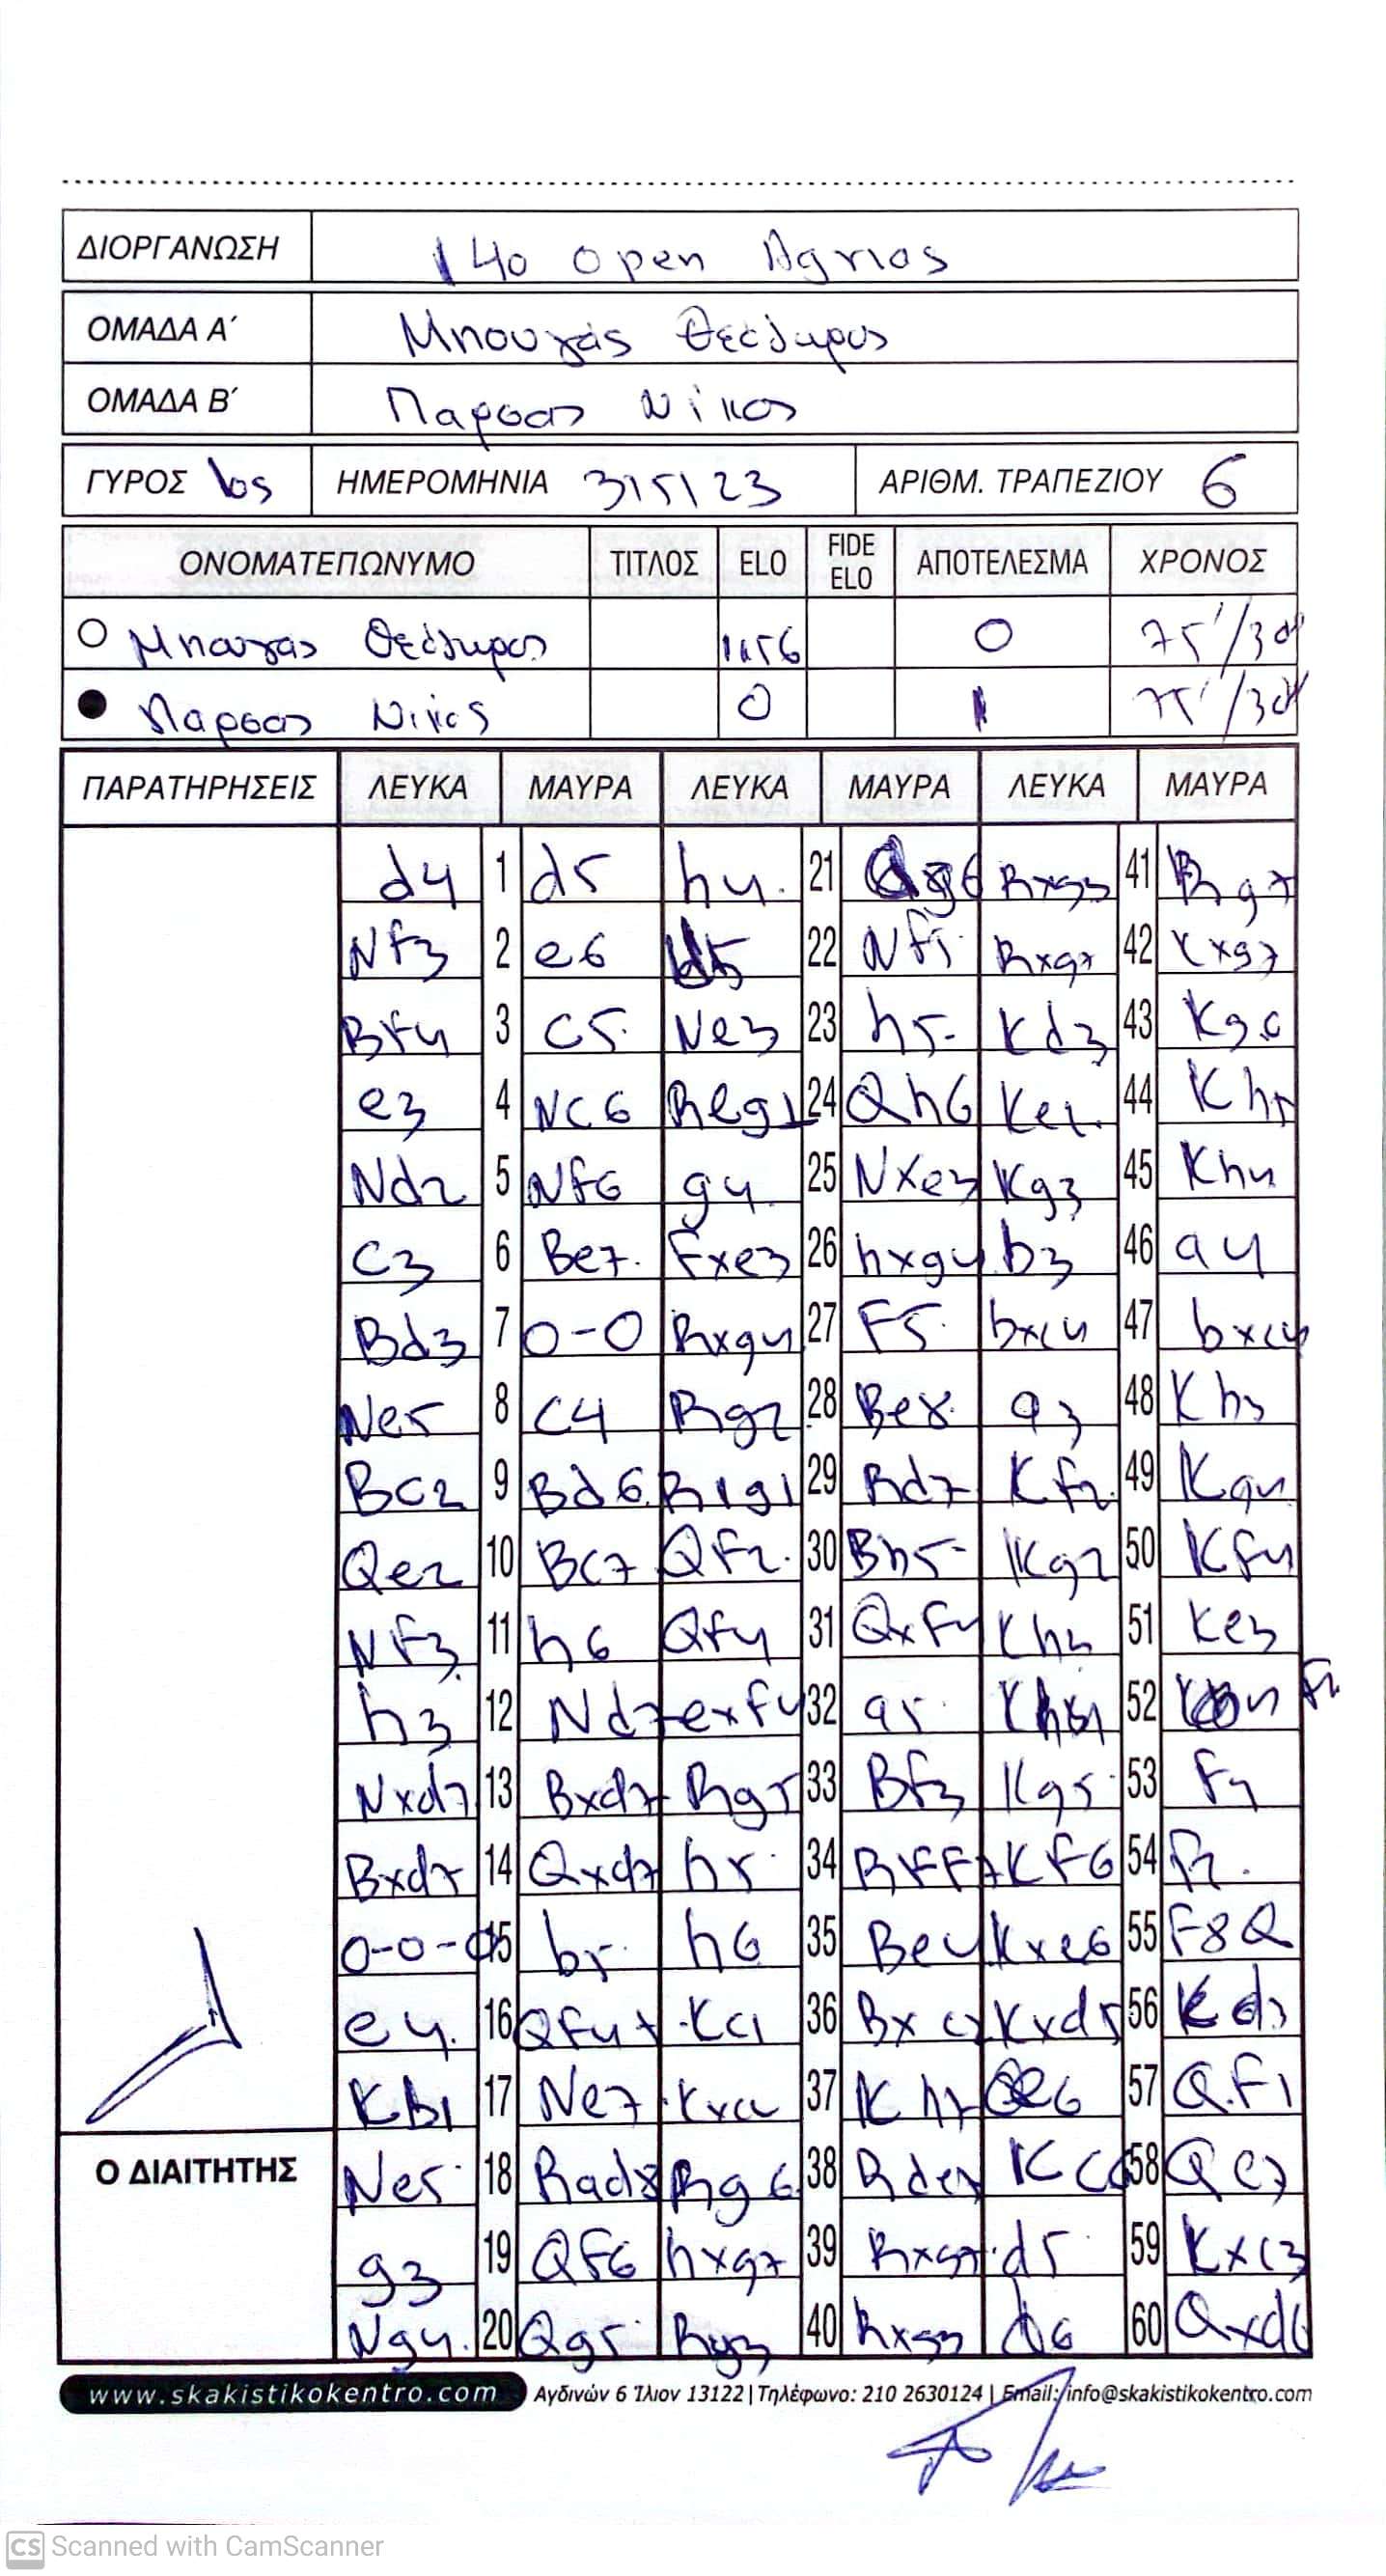 ΔΙΟΡΓΑΝΩΣΗ 14ο open Αgrιας
ΟΜΑΔΑ Α΄ Μπουγάς Θεόδωρος
ΟΜΑΔΑ Β΄ Παρσας Νίκος
ΓΥΡΟΣ 1ος ΗΜΕΡΟΜΗΝΙΑ 3/5/23 ΑΡΙΘΜ. ΤΡΑΠΕΖΙΟΥ 6
ΟΝΟΜΑΤΕΠΩΝΥΜΟ ΤΙΤΛΟΣ ELO FIDE ELO ΑΠΟΤΕΛΕΣΜΑ ΧΡΟΝΟΣ
Μπουγάς Θεόδωρος 1156 0 75'/30"
Παρσας Νίκος 0 1 75'/30"
ΠΑΡΑΤΗΡΗΣΕΙΣ ΛΕΥΚΑ ΜΑΥΡΑ ΛΕΥΚΑ ΜΑΥΡΑ ΛΕΥΚΑ ΜΑΥΡΑ
d4 1 d5 h4. 21 Qg6 Rxg3 41 Rg7
Nf3 2 e6 22 Nf5 Rxg7 42 Kxg7
Bf4 3 c5. Ne3 23 h5- Kd3 43 Kg6
e3 4 Nc6 Reg1 24 Qh6 Ke2. 44 Kh5
Nd2 5 Nf6 g4. 25 Nxe3 Kg3 45 Kh4
c3 6 Be7. Fxe3 26 hxg4 b3 46 a4
Bd3 7 0-0 Rxg4 27 F5. bxc4 47 bxc4
Ne5 8 c4 Rg2 28 Be8. a3 48 Kh3
Bc2 9 Bd6. R1g1 29 Rd7 Kf2. 49 Kg4
Qe2 10 Bc7 QF2. 30 Bh5- Kg2 50 Kf4
NF3. 11 h6 Qf4 31 QxF4 Kh3 51 Ke3
h3 12 Nd7 exf4 32 a5. 52 F2
Nxd7. 13 Bxd7 Rg5 33 Bf3 Kg5. 53 F4
Bxd7 14 Qxd7 h5. 34 RFF7 KF6 54 F2.
0-0-0 15 b5. h6 35 Be4 Kxe6 55 F8Q
e4. 16 QF4+ Kc1 36 Bxc2 Kxd5 56 Kd3
Kb1 17 Ne7 Kxc2 37 Kh7 Qe6 57 Q.F1
Ne5. 18 Rad8 Rg6. 38 Rde7 Kc6 58 Qe7
g3 19 QF6 hxg7 39 Rxg7. d5. 59 Kxc3
Ng4. 20 Qg5. Rg3 40 Rxg3 d6 60 Qxd6
Ο ΔΙΑΙΤΗΤΗΣ
www.skakistikokentro.com Αγδινών 6 Ίλιον 13122 | Τηλέφωνο: 210 2630124 | Email: info@skakistikokentro.com
CS Scanned with CamScanner